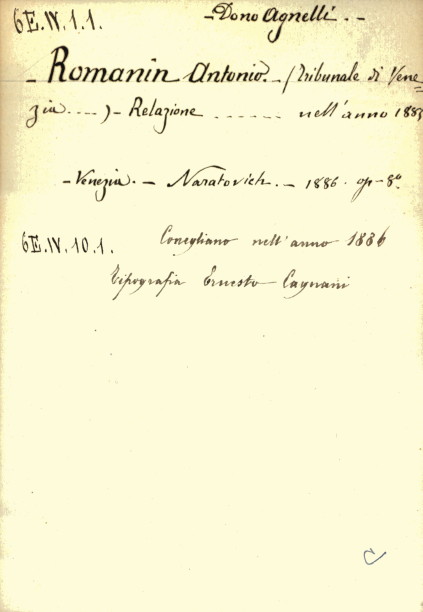 6E.IV.1.1. - Dono Agnelli. -
- Romanin Antonio. - (Tribunale di Vene=
zia .... ) - Relazione ...... nell'anno 1885
- Venezia. - Naratovich. - 1886. op - 8°.
6E.IV.10.1. Conegliano nell'anno 1886
Tipografia Ernesto Cagnani
C